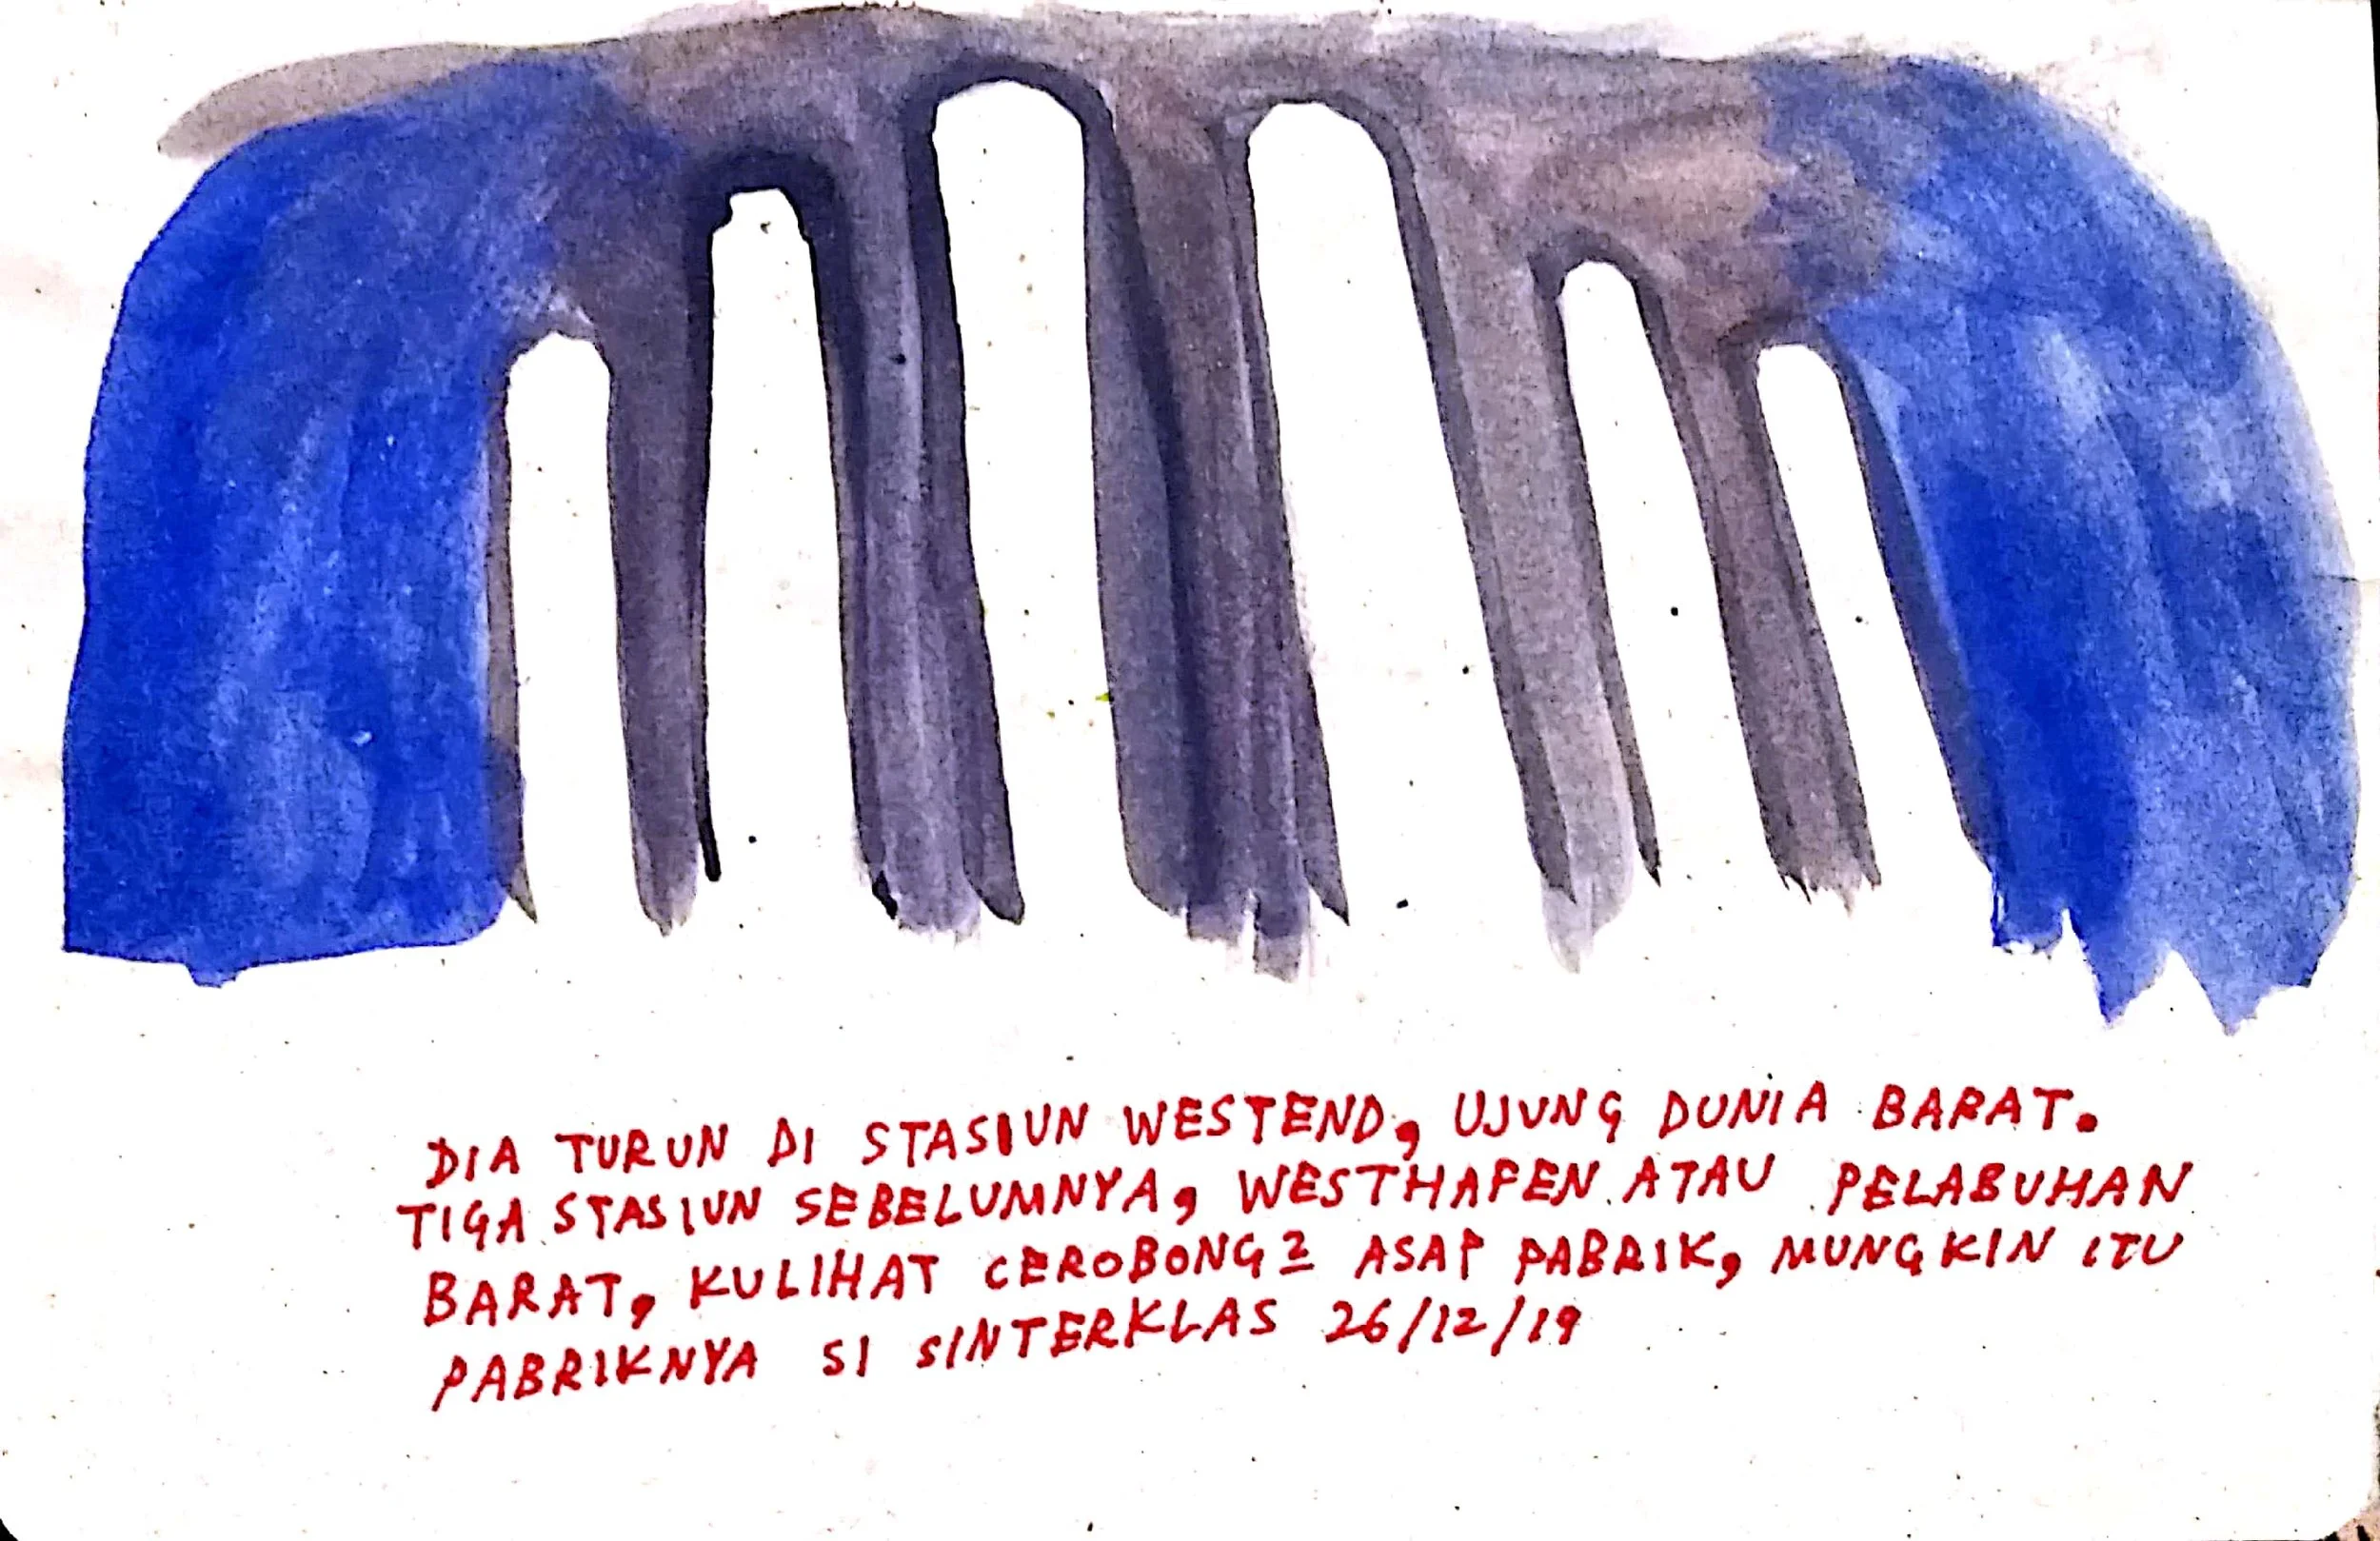 DIA TURUN DI STASIUN WESTEND, UJUNG DUNIA BARAT.
TIGA STASIUN SEBELUMNYA, WESTHAFEN ATAU PELABUHAN
BARAT, KULIHAT CEROBONG2 ASAP PABRIK, MUNGKIN ITU
PABRIKNYA SI SINTERKLAS 26/12/19